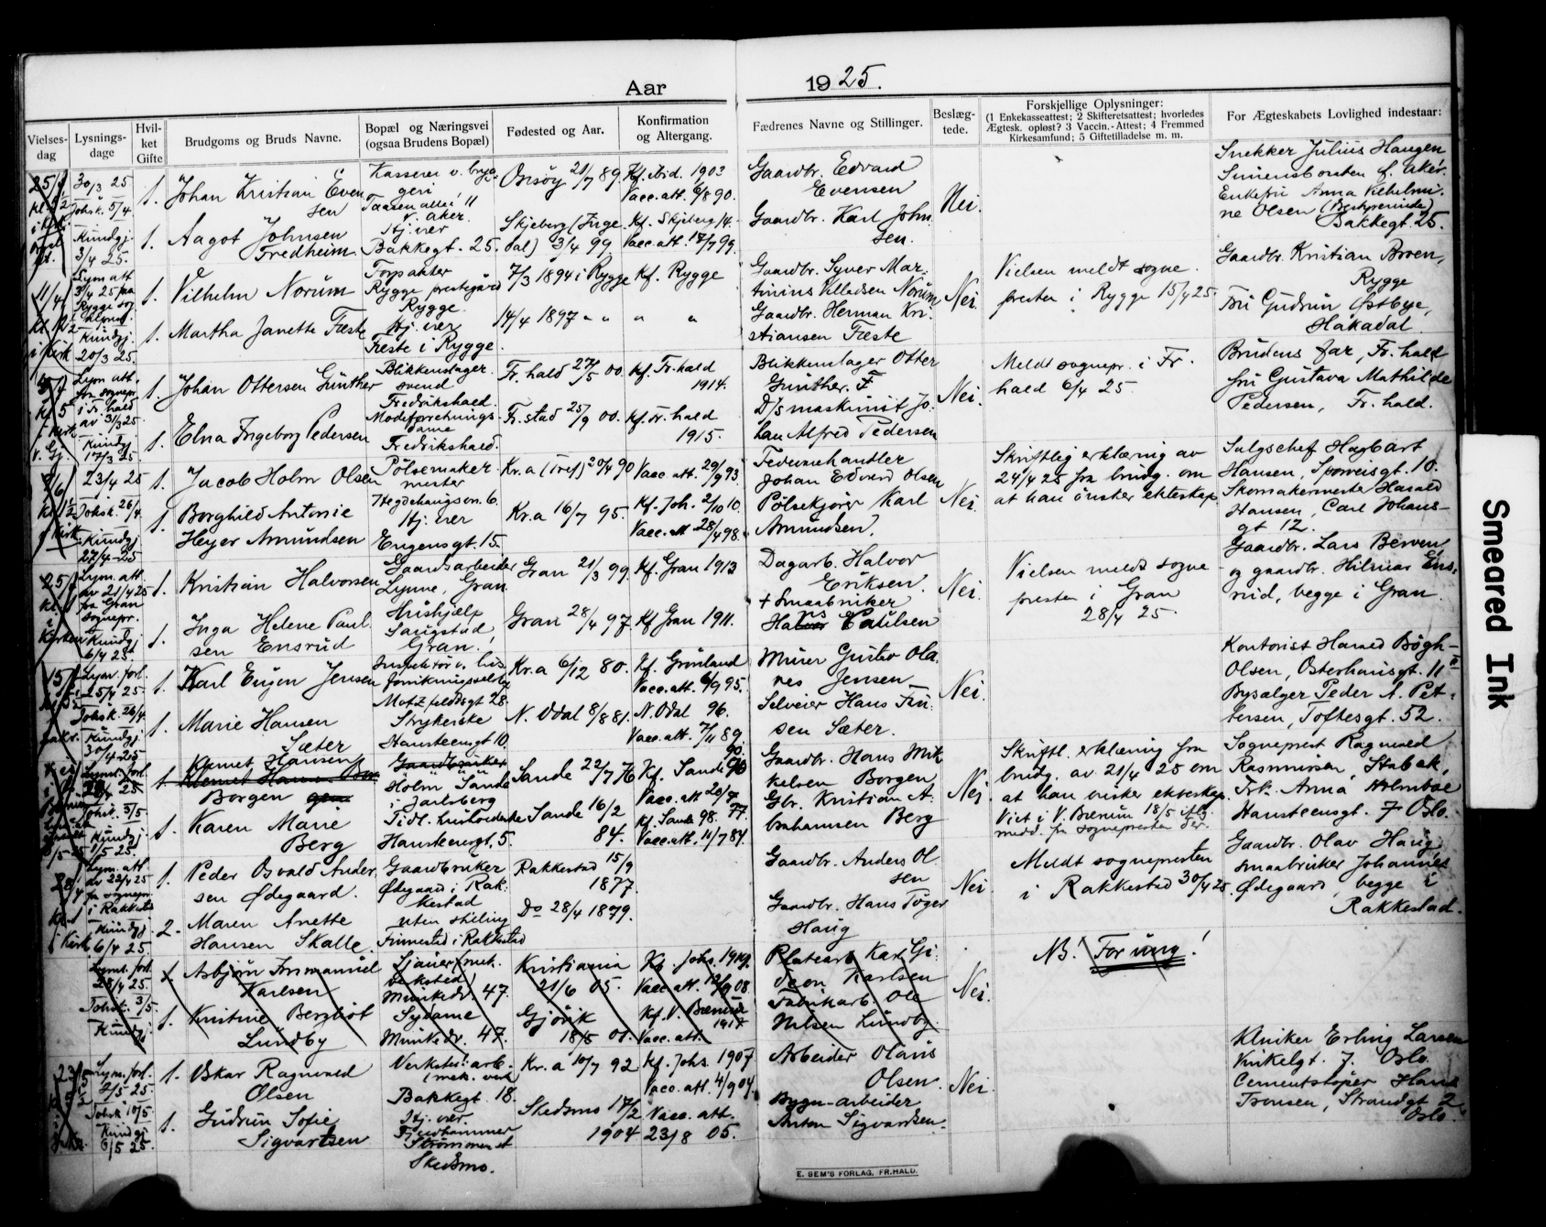 Aar 1925.
Vielses- dag
Lysnings- dage
Hvil- ket Gifte
Brudgoms og Bruds Navne.
Bopæl og Næringsvei (ogsaa Brudens Bopæl)
Fødested og Aar.
Konfirmation og Altergang.
Fædrenes Navne og Stillinger.
Beslæg- tede.
Forskjellige Oplysninger:
(1 Enkekasseattest; 2 Skifteretsattest; hvorledes
Ægtesk. opløst? 3 Vaccin.-Attest; 4 Fremmed
Kirkesamfund; 5 Giftetilladelse m. m.
For Ægteskabets Lovlighed indestaar:
30/3 25
Johsk. 5/4
Kundgj.
3/4 25.
1.
Johan Kristian Even
sen
1.
Aagot Johnsen
Fredheim.
Kasserer v. bryg
geri
Taasenallei 11
V. aker.
Hj. vær
Bakkegt. 25.
Onsøy 21/7 89.
Skjeberg (Inge
dal) 3/4 99
Kf. ibid. 1903
Vacc. att. 6/8 90.
Kf. Skjeberg 14.
Vacc. att. 17/7 99.
Gaardbr. Edvard
Evensen
Gaardbr. Karl John
sen.
Nei.
Snekker Julius Haugen
f. aker.
Enkefru Anna Vilhelmi-
ne Olsen (Bestyrerinde)
Bakkegt. 25.
11/4
Lysn. att.
Kundgj.
20/3 25.
1.
Vilhelm Norum
1.
Martha Janette Fæste
Forpakter
Rygge prestegård
Rygge.
Hj. vær
Fæste i Rygge.
7/3 1894 i Rygge
14/4 1897 " "
Kf. Rygge
" "
Gaardbr. Syver Mar-
tinius Villadsen Norum
Gaardbr. Herman Kri
stiansen Fæste
Nei.
Vielsen meldt sogne
presten i Rygge 15/4 25.
Gaardbr. Kristian Broen,
Rygge
Fru Gudrun Østbye,
Hakadal.
Lysn. att.
fra sognepr.
i Fr. hald
av 3/3 25.
Kundgj.
17/3 25
Johan Ottersen Günther
1.
Elna Ingeborg Pedersen
Blikkenslager-
svend
Fredrikshald.
Modeforretnings-
dame
Fredrikshald.
Fr. hald 27/5 00.
Fr. stad 25/9 00.
Kf. Fr. hald
1914.
Kf. Fr. hald
1915.
Blikkenslager Otter
Gunther. F
D/s maskinist Jo.
han Alfred Pedersen
Nei.
Meldt sognepr. i Fr.
hald 6/4 25.
Brudens far, Fr. hald
fru Gustava Mathilde
Pedersen, Fr. hald.
23/4 25
Johsk. 26/4
Kundgj.
27/4-25
Jacob Holm Olsen
1.
Borghild Antonie
Heyer Amundsen
Pølsemaker
mester
Hegdehaugsvn. 6.
Hj. vær
Eugensgt. 15.
Kr.a (Tref) 20/4 90
Kr.a 16/7 95.
Vacc. att. 29/9 93
Kf. Joh. 2/10 10.
Vacc. att. 28/4 98.
Federiehandler
Johan Edvard Olsen
Pølsekjører Karl
Amundsen.
Nei.
Skriftlig erklæring av
24/4 25 fra brudg. om
at han ønsker ekteskap
Salgschef Hagbart
Hansen, Sporveisgt. 10.
Skomakermester Harald
Hansen, Carl Johans-
gt 12.
25/4
Lysn. att.
av 21/4 25
fra Gran
sognepr.
Kundgj.
6/4 25
1.
Kristian Halvorsen
1.
Inga Helene Paul
sen Ensrud
Gaardsarbeider
Lynne, Gran
Hushjelp
Gran.
Gran 21/3 99.
Gran 28/4 97
Kf. Gran 1913
Kf Gran 1911.
Dagarb. Halvor
Eriksen
+ Smaabruker
Hans Paulsen
Nei.
Vielsen meldt sogne
presten i Gran
28/4 25.
Gaardbr. Lars Berven
og gaardbr. Hilmar Ens.
rud, begge i Gran.
15/5
Lysn. forl.
25/4 25.
Johsk. 26/4.
Kundgj.
30/4-25
1.
Karl Eugen Jensen
1.
Marie Hansen
Sæter
Inspektør v. livs
forsikringsselsk.
Motzfeldtsgt 28.
Strykerske
Hansteensgt 10.
Kr.a 6/12 80.
N. Odal 8/8 81.
Kf. Grønland
Vacc. att. 6/9 95.
N. Odal 96.
Vacc. att. 7/11 89
Murer Gustav Ola.
ves Jensen
Selveier Hans Fin
sen Sæter.
Nei.
Kontorist Harald Bøgh-
Olsen, Osterhausgt. 11
Brysælger Peder A. Pet-
tersen, Toftesgt. 52.
Lysn. forl.
Johsk. 3/5
Kundgj.
1/5 25.
1
Kornet Hansen
Borgen
1.
Karen Marie
Berg
Gaardbruker
Holm Sande
i Jarlsberg
Tidl. husholderske
Hansteensgt. 5.
Sande 22/7 76
Sande 16/2
84.
Kf. Sande 90
Vacc. att 20/9 77.
Kf. Sande 98.
Vacc. att. 11/7 84.
Gaardbr. Hans Mik
kelsen Borgen
Gbr. Kristian A.
brahamsen Berg
Nei
Skriftl. erklæring fra
brudg. av 21/4 25 om
at han ønsker ekteskap.
Viet i V. Bærum 18/5 iflg.
medd. fra sognepresten der.
Sogneprest Ragnvald
Rasmussen, Stabæk,
Frk. Anna Holmboe
Hansteensgt. 7 Oslo.
Lysn. att.
av 22/4 25
fra sognepr.
i Rakkestad
Kundgj.
6/4 25
1.
Peder Osvald Ander
sen Ødegaard.
2.
Maren Anette
Hansen Skalle
Gaardbruker
Ødegaard i Rak-
kestad
uten stilling
Finnestad i Rakkestad
Rakkestad 15/9
1877.
Do 28/4 1879.
Gaardbr. Anders Ol
sen
Gaardbr. Hans Tøger
Haug
Nei
Meldt sognepresten
i Rakkestad 30/4 25.
Gaardbr. Olav Haug
smaabruker Johannes
Ødegaard, begge i
Rakkestad.
Lysn. forl.
28/4 25.
Johsk. 3/5.
Kundgj.
1.
Asbjørn Emmanuel
Karlsen
1.
Kristine Bergljot
Lundby
verksted
Munkedv. 47.
Sydame
Munkedv. 47.
Kristiania
21/6 05.
Gjøvik
18/5 01.
Kf. Johs. 1919.
Vacc. att. 12/9 08
Kf. V. Bærum
1917
Vacc. att.
Platearb. Karl Gi
deon Karlsen
Fabrikarb. Ole
Nilsen Lundby.
Nei.
NB! For ung!
23/5
Lysn. forl.
2/5 25.
Johsk. 10/5.
Kundgj.
6/5 25.
1.
Oskar Ragnvald
Olsen
1.
Gudrun Sofie
Sigvartsen
Verksted. arb.
(mek. verk
Bakkegt. 18.
Hj. vær.
Strømmen st
Skedsmo.
Kr.a 10/7 92
Skedsmo 17/2
1904
Kf. Johs. 1907
Vacc. att. 4/9 04
Vacc. att.
23/8 05.
Arbeider Olaus
Olsen.
Bygn-arbeider
Anton Sigvardsen.
Nei.
Kliniker Erling Larsen
7. Oslo
Cementstøper Hans
Svensen, Strandgt 2
Oslo.
E. SEM'S FORLAG, FR.HALD.
Smeared Ink